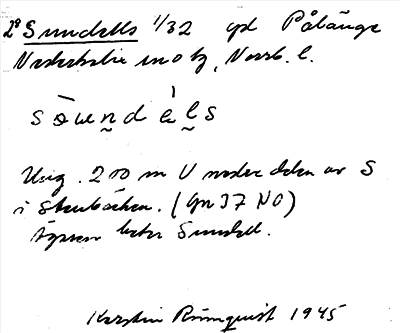 2° Sundells 1/32 gd Pålänge
Nederkalix sn o tg, Norrb. l.
sɵund èls
Usg. 200 m V nedre delen av S
i Stenbäcken. (Gn 37 NO)
Ägaren heter Sundell.
Kerstin Römquist 1945